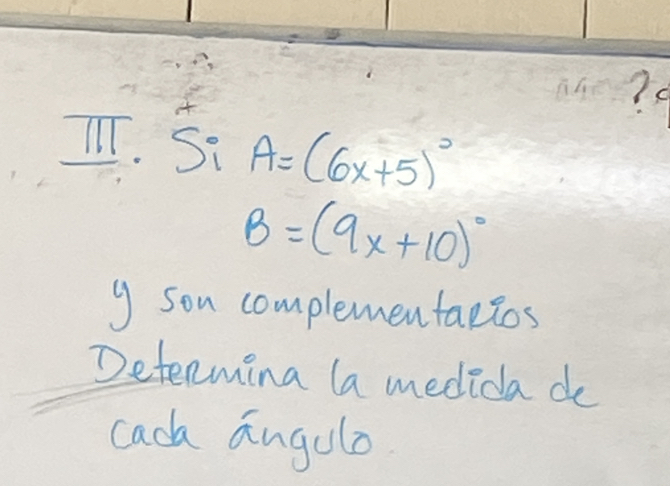 III. Si A=(6x+5)°
B=(9x+10)°
y son complementarios
Determina la medida de
cada ángulo
?